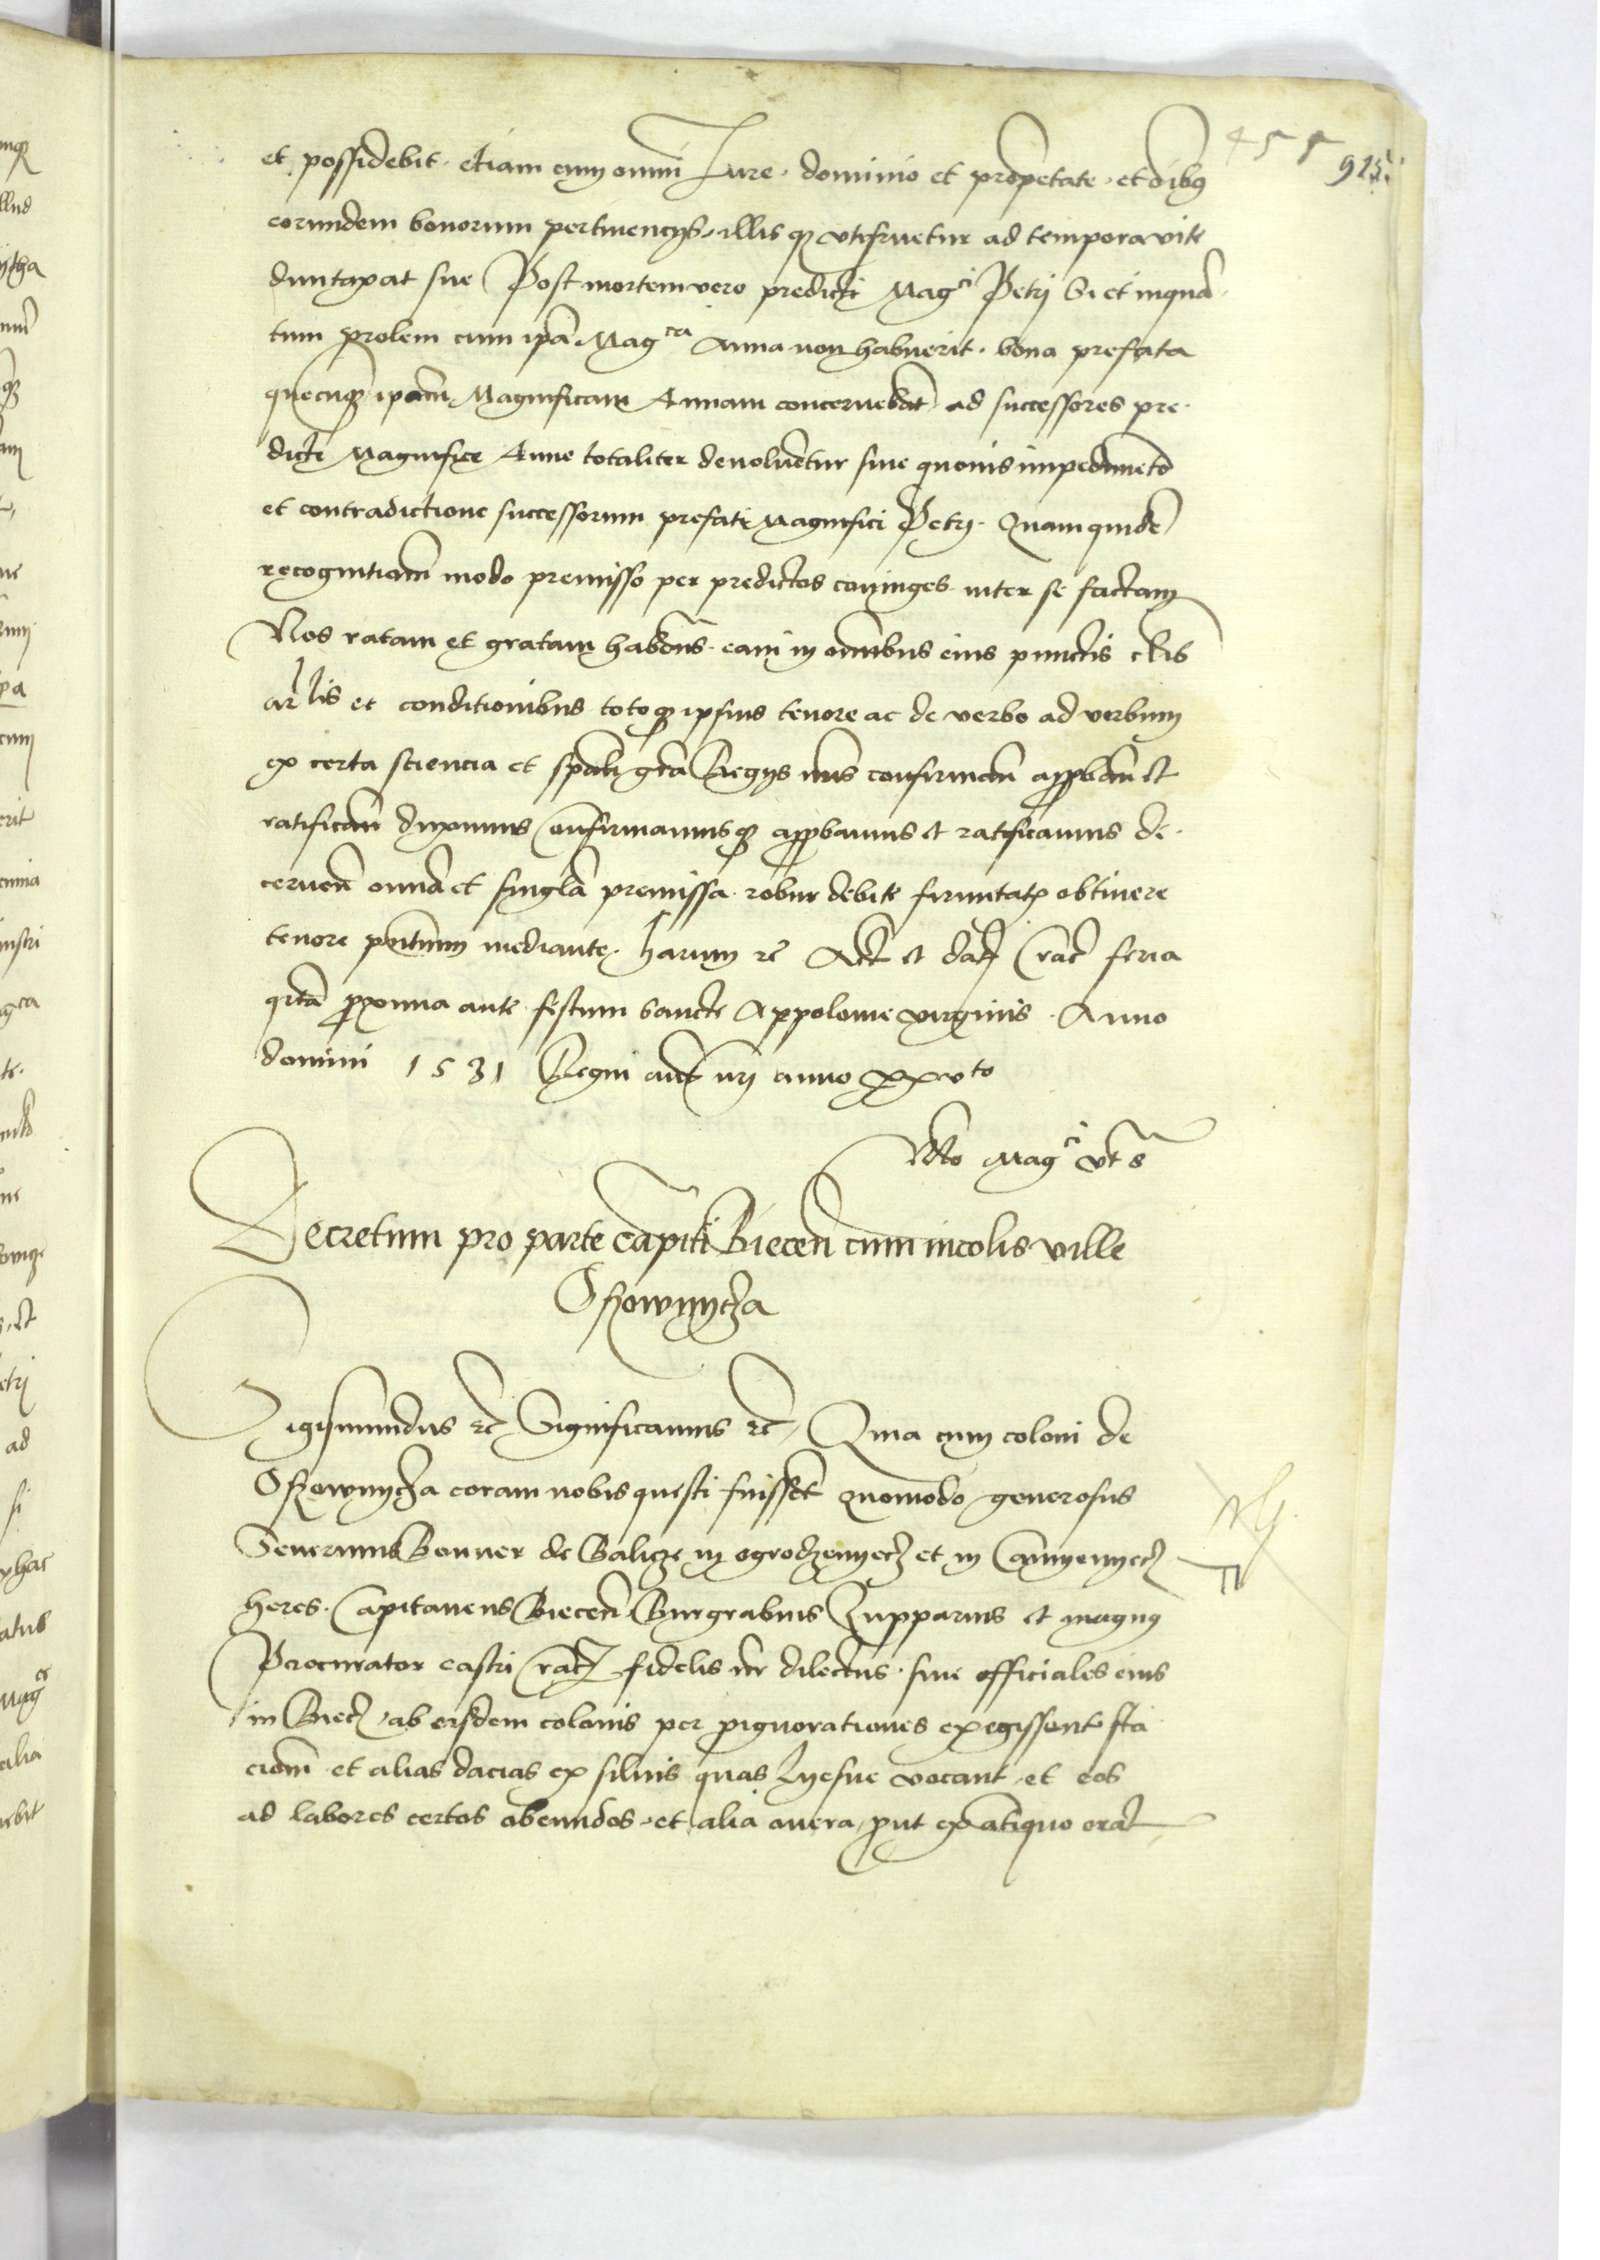 455 915
et possidebit. etiam cum omni Jure. dominio et propetate. et oibus
eorundem bonorum pertinencys. illis q₃ vtifruetur ad tempora vite
duntaxat sue Post mortem vero predicti Mag^ci Petri Si et inquan-
tum prolem cum ipa Mag^ca Anna non habuerit. bona prefata
quecunq₃ ipam Magnificam Annam concernebat ad successores pre-
dicte Magnifice Anne totaliter devoluentur sine quouis impedimeto
et contradictione successorum prefati Magnifici Petri. Quamquide
recognitiom modo premisso per predictos coniuges inter se factam
Nos ratam et gratam habens. eam in omibus eius punctis clis
arlis et conditionibus totoq₃ ipsius tenore ac de verbo ad verbum
ex certa sciencia et spali gra Regys nris confirman approban et
ratifican duximus Confirmamusq₃ approbamus et ratificamus de-
cernen omnia et singla premissa. robur debite firmitatis obtinere
tenore pntium mediante. harum rc Act et dat Crac feria
qrta proxima ante festum sancte Appolonie virginis. Anno
domini 1531 Regni aut nri anno xxv^to
Rlo Mag^ci vt s
Decretum pro parte Capiti Biecen cum incolis ville
Ozownycza
Sigismundus rc Significamus rc, Quia cum coloni de
Ozownycza coram nobis questi fuisset quomodo generosus
Seuerinus Bonner de Balicze in ogrodzenyecz et in Camyenyecz
heres. Capitaneus Biecen Burgrabius Zupparius et magnus
Procurator castri Crac fidelis nr dilectus. siue officiales eius
in Biecz ab eisdem colonis per pignorationes exegissent sta
ciom et alias dacias ex siluis quas Lyesne vocant et eos
ad labores certos obeundos et alia onera, prut ex atiquo erat